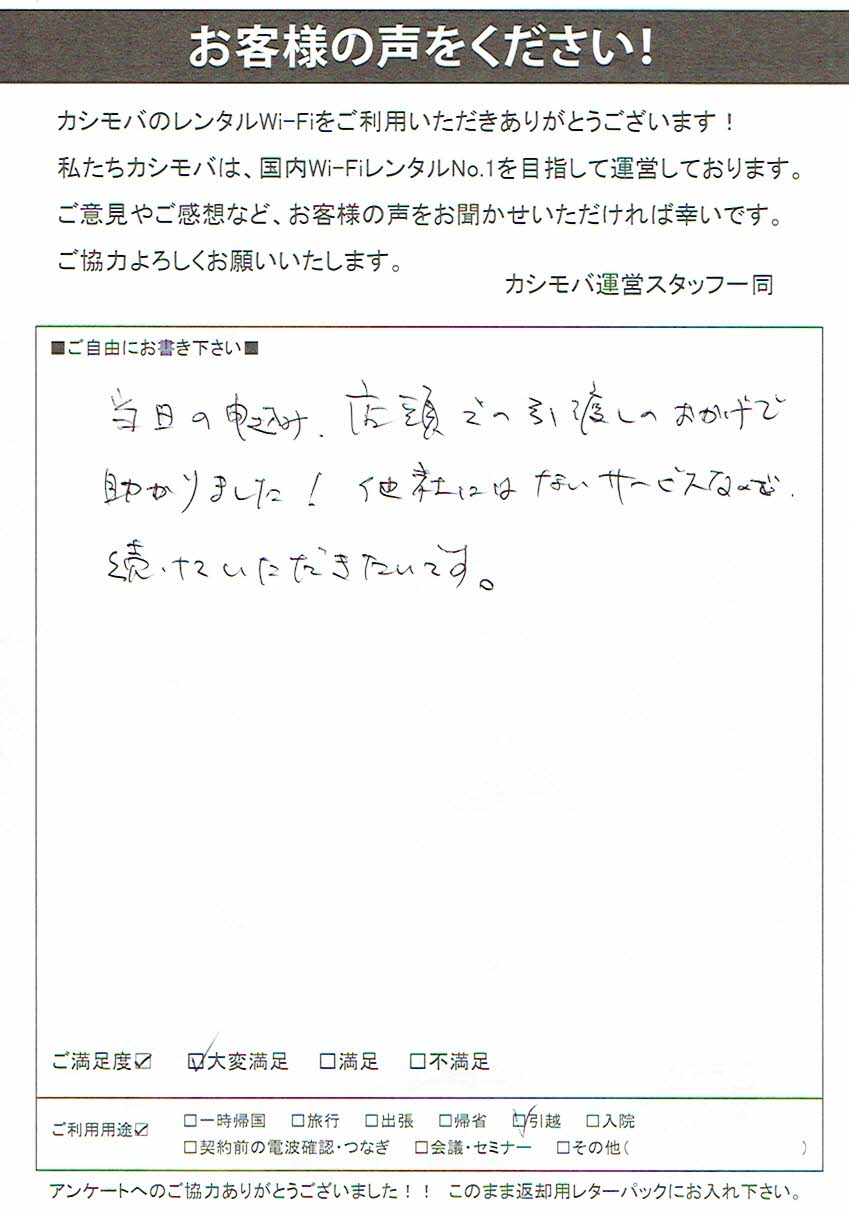 お客様の声をください!
カシモバのレンタルWi-Fiをご利用いただきありがとうございます!
私たちカシモバは、国内Wi-FiレンタルNo.1を目指して運営しております。
ご意見やご感想など、お客様の声をお聞かせいただければ幸いです。
ご協力よろしくお願いいたします。
カシモバ運営スタッフ一同
■ご自由にお書き下さい■
当日の申込み、店頭での引渡しのおかげで
助かりました! 他社にはないサービスなので、
続けていただきたいです。
ご満足度☑ ☑大変満足 □満足 □不満足
ご利用用途☑ □一時帰国 □旅行 □出張 □帰省 ☑引越 □入院
□契約前の電波確認・つなぎ □会議・セミナー □その他( )
アンケートへのご協力ありがとうございました!! このまま返却用レターパックにお入れ下さい。